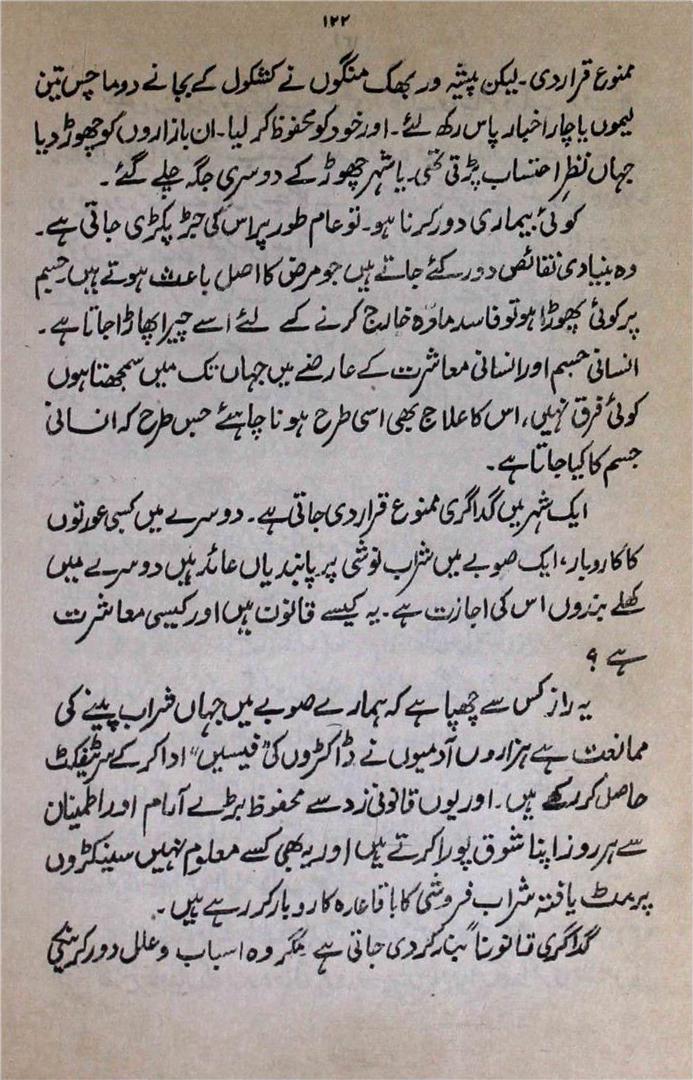 ۱۲۲
ممنوع قرار دی ۔ لیکن پیشہ ور بھک منگوں نے کشکول کے بجائے دو ماچس تین
لیموں یا چار اخبار پاس رکھ لئے ۔ اور خود کو محفوظ کر لیا ۔ ان بازاروں کو چھوڑ دیا
جہاں نظرِ احتساب پڑتی تھی ۔ یا شہر چھوڑ کے دوسری جگہ چلے گئے ۔
کوئی بیماری دور کرنا ہو ۔ تو عام طور پر اس کی جڑ پکڑی جاتی ہے ۔
وہ بنیادی نقائص دور کئے جاتے ہیں جو مرض کا اصل باعث ہوتے ہیں جسم
پر کوئی پھوڑا ہو تو فاسد مادّہ خارج کرنے کے لئے اسے چیرا پھاڑا جاتا ہے ۔
انسانی جسم اور انسانی معاشرت کے عارضے میں جہاں تک میں سمجھتا ہوں
کوئی فرق نہیں، اس کا علاج بھی اسی طرح ہونا چاہئے جس طرح کہ انسانی
جسم کا کیا جاتا ہے ۔
ایک شہر میں گداگری ممنوع قرار دی جاتی ہے ۔ دوسرے میں کسبی عورتوں
کا کاروبار، ایک صوبے میں شراب نوشی پر پابندیاں عائد ہیں دوسرے میں
کھلے بندوں اس کی اجازت ہے ۔ یہ کیسے قانون ہیں اور کیسی معاشرت
ہے ؟
یہ راز کس سے چھپا ہے کہ ہمارے صوبے میں جہاں شراب پینے کی
ممانعت ہے ہزاروں آدمیوں نے ڈاکٹروں کی “فیسیں” ادا کر کے سرٹیفکٹ
حاصل کر رکھے ہیں ۔ اور یوں قانونی زد سے محفوظ بڑے آرام اور اطمینان
سے ہر روز اپنا شوق پورا کرتے ہیں اور یہ بھی کسے معلوم نہیں سینکڑوں
پرمٹ یافتہ شراب فروشی کا باقاعدہ کاروبار کر رہے ہیں ۔
گداگری قانوناً بند کر دی جاتی ہے مگر وہ اسباب و علل دور کرنیکی